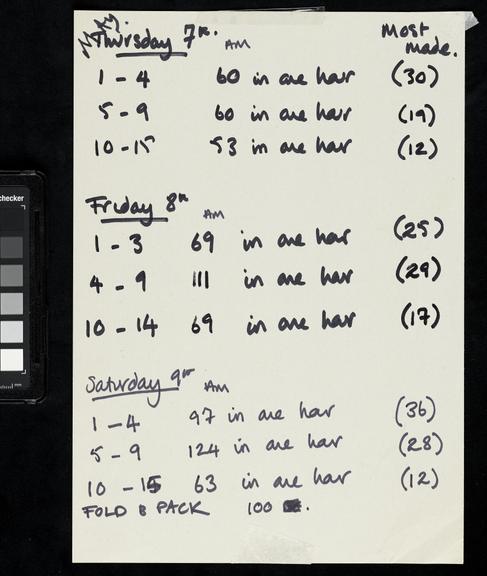 Thursday 7th. AM Most made.
1 - 4 60 in one hour (30)
5 - 9 60 in one hour (19)
10 - 15 53 in one hour (12)
Friday 8th AM
1 - 3 69 in one hour (25)
4 - 9 111 in one hour (29)
10 - 14 69 in one hour (17)
Saturday 9th AM
1 - 4 97 in one hour (36)
5 - 9 124 in one hour (28)
10 - 15 63 in one hour (12)
FOLD & PACK 100
checker